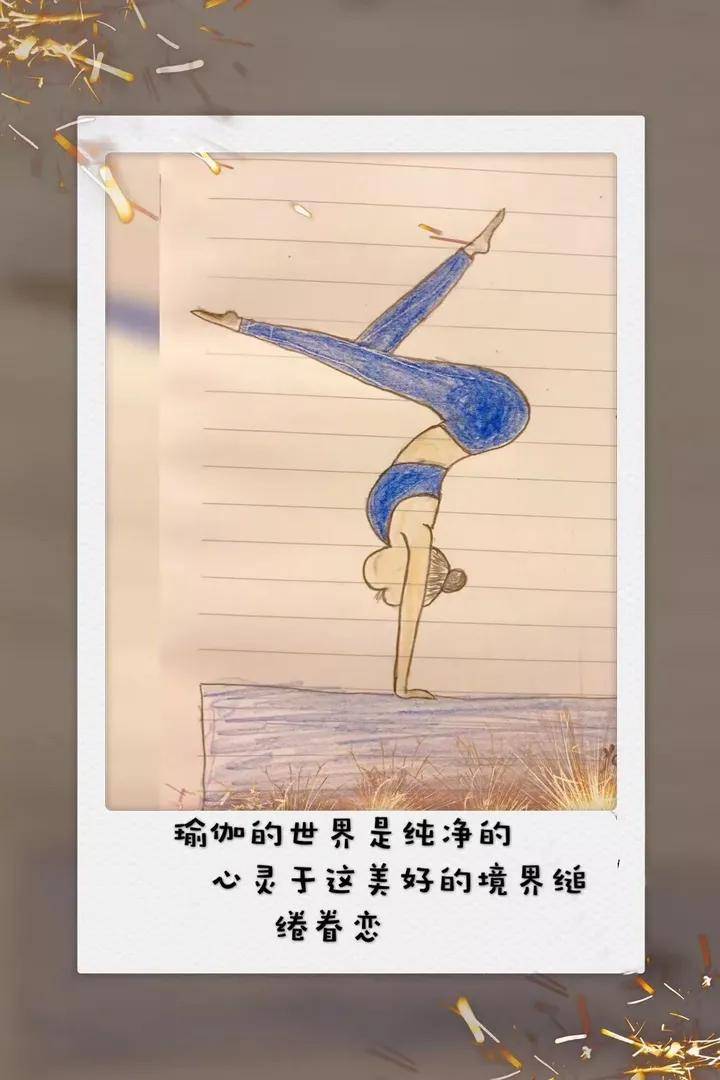 瑜伽的世界是纯净的
心灵于这美好的境界缱
绻眷恋